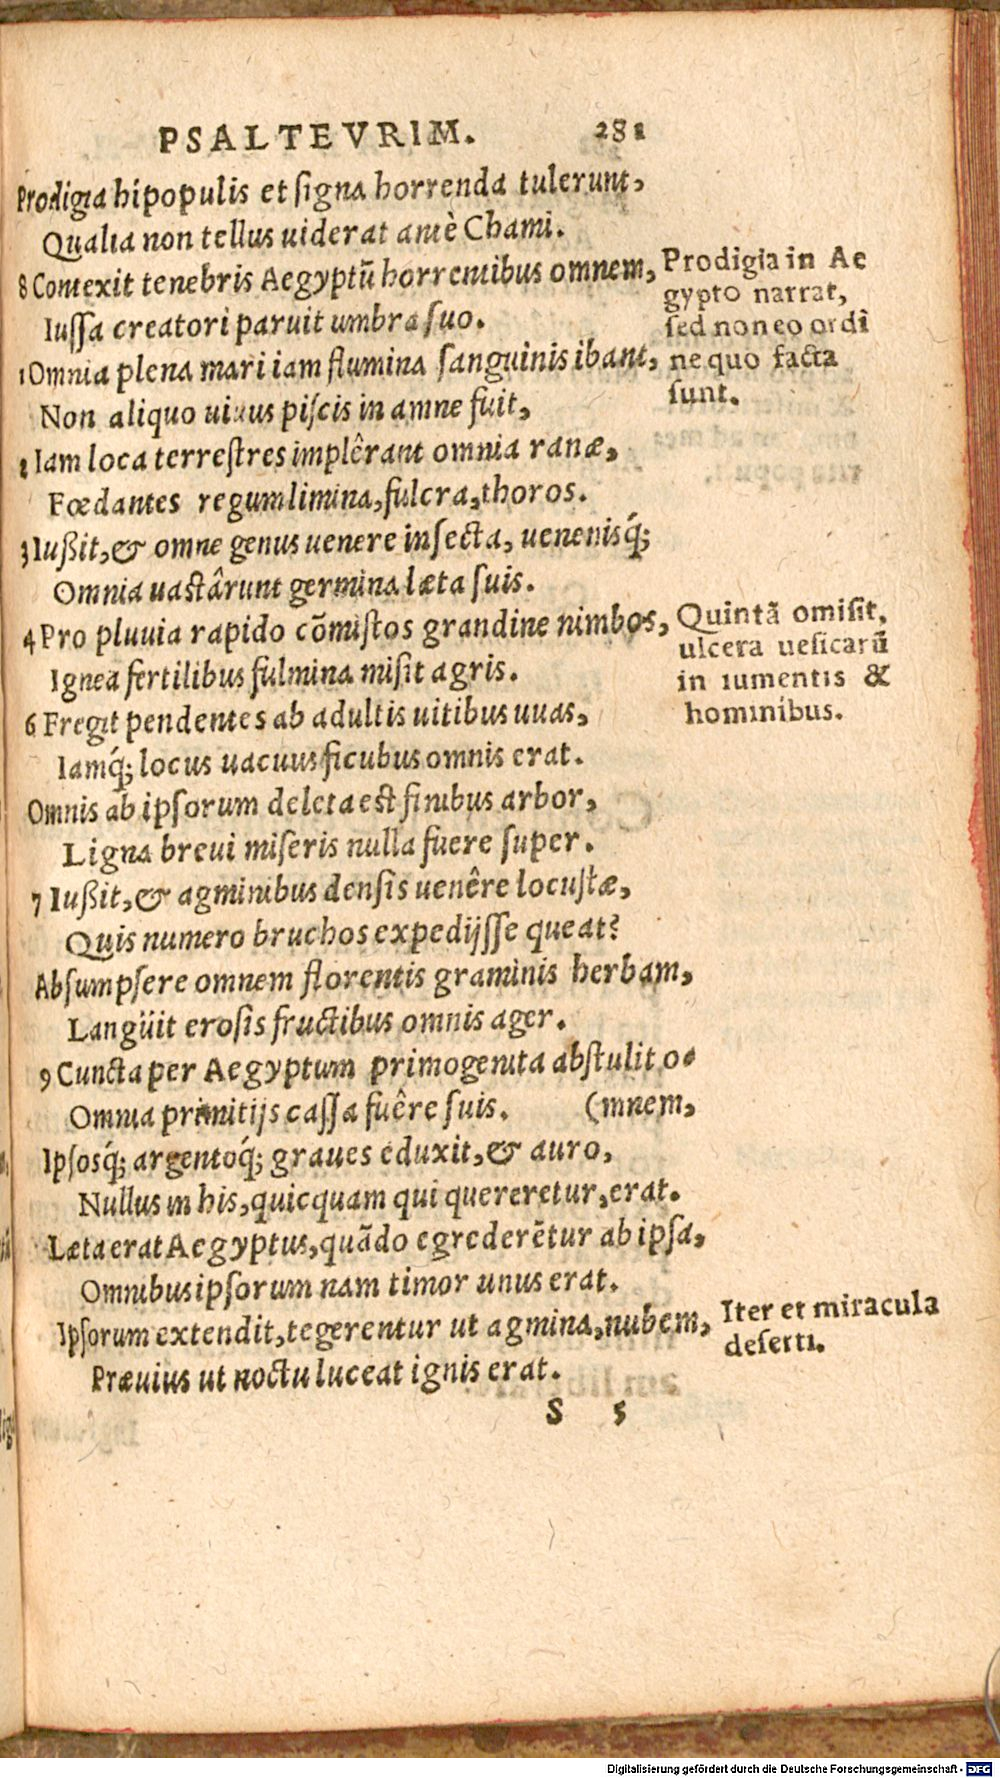 PSALTEVRIM. 281
Prodigia hi populis et signa horrenda tulerunt,
Qualia non tellus uiderat antè Chami.
8 Contexit tenebris Aegyptũ horrentibus omnem,
Iussa creatori paruit umbra suo.
1 Omnia plena mari iam flumina sanguinis ibant,
Non aliquo uiuus piscis in amne fuit,
2 Iam loca terrestres implêrant omnia ranæ,
Fœdantes regum limina, fulcra, thoros.
3 Iußit, & omne genus uenere insecta, uenenisq́;
Omnia uastârunt germina læta suis.
4 Pro pluuia rapido cõmistos grandine nimbos,
Ignea fertilibus fulmina misit agris.
6 Fregit pendentes ab adultis uitibus uuas,
Iamq́; locus uacuus ficubus omnis erat.
Omnis ab ipsorum deleta est finibus arbor,
Ligna breui miseris nulla fuere super.
7 Iußit, & agminibus densis uenêre locustæ,
Quis numero bruchos expedijsse queat?
Absumpsere omnem florentis graminis herbam,
Langüit erosis fructibus omnis ager.
9 Cuncta per Aegyptum primogenita abstulit o-
Omnia primitijs cassa fuêre suis. (mnem,
Ipsosq́; argentoq́; graues eduxit, & auro,
Nullus in his, quicquam qui quereretur, erat.
Læta erat Aegyptus, quãdo egrederẽtur ab ipsa,
Omnibus ipsorum nam timor unus erat.
Ipsorum extendit, tegerentur ut agmina, nubem,
Præuius ut noctu luceat ignis erat.
S 5
Prodigia in Ae
gypto narrat,
sed non eo ordi
ne quo facta
sunt.
Quintã omisit,
ulcera uesicarũ
in iumentis &
hominibus.
Iter et miracula
deserti.
Digitalisierung gefördert durch die Deutsche Forschungsgemeinschaft - DFG